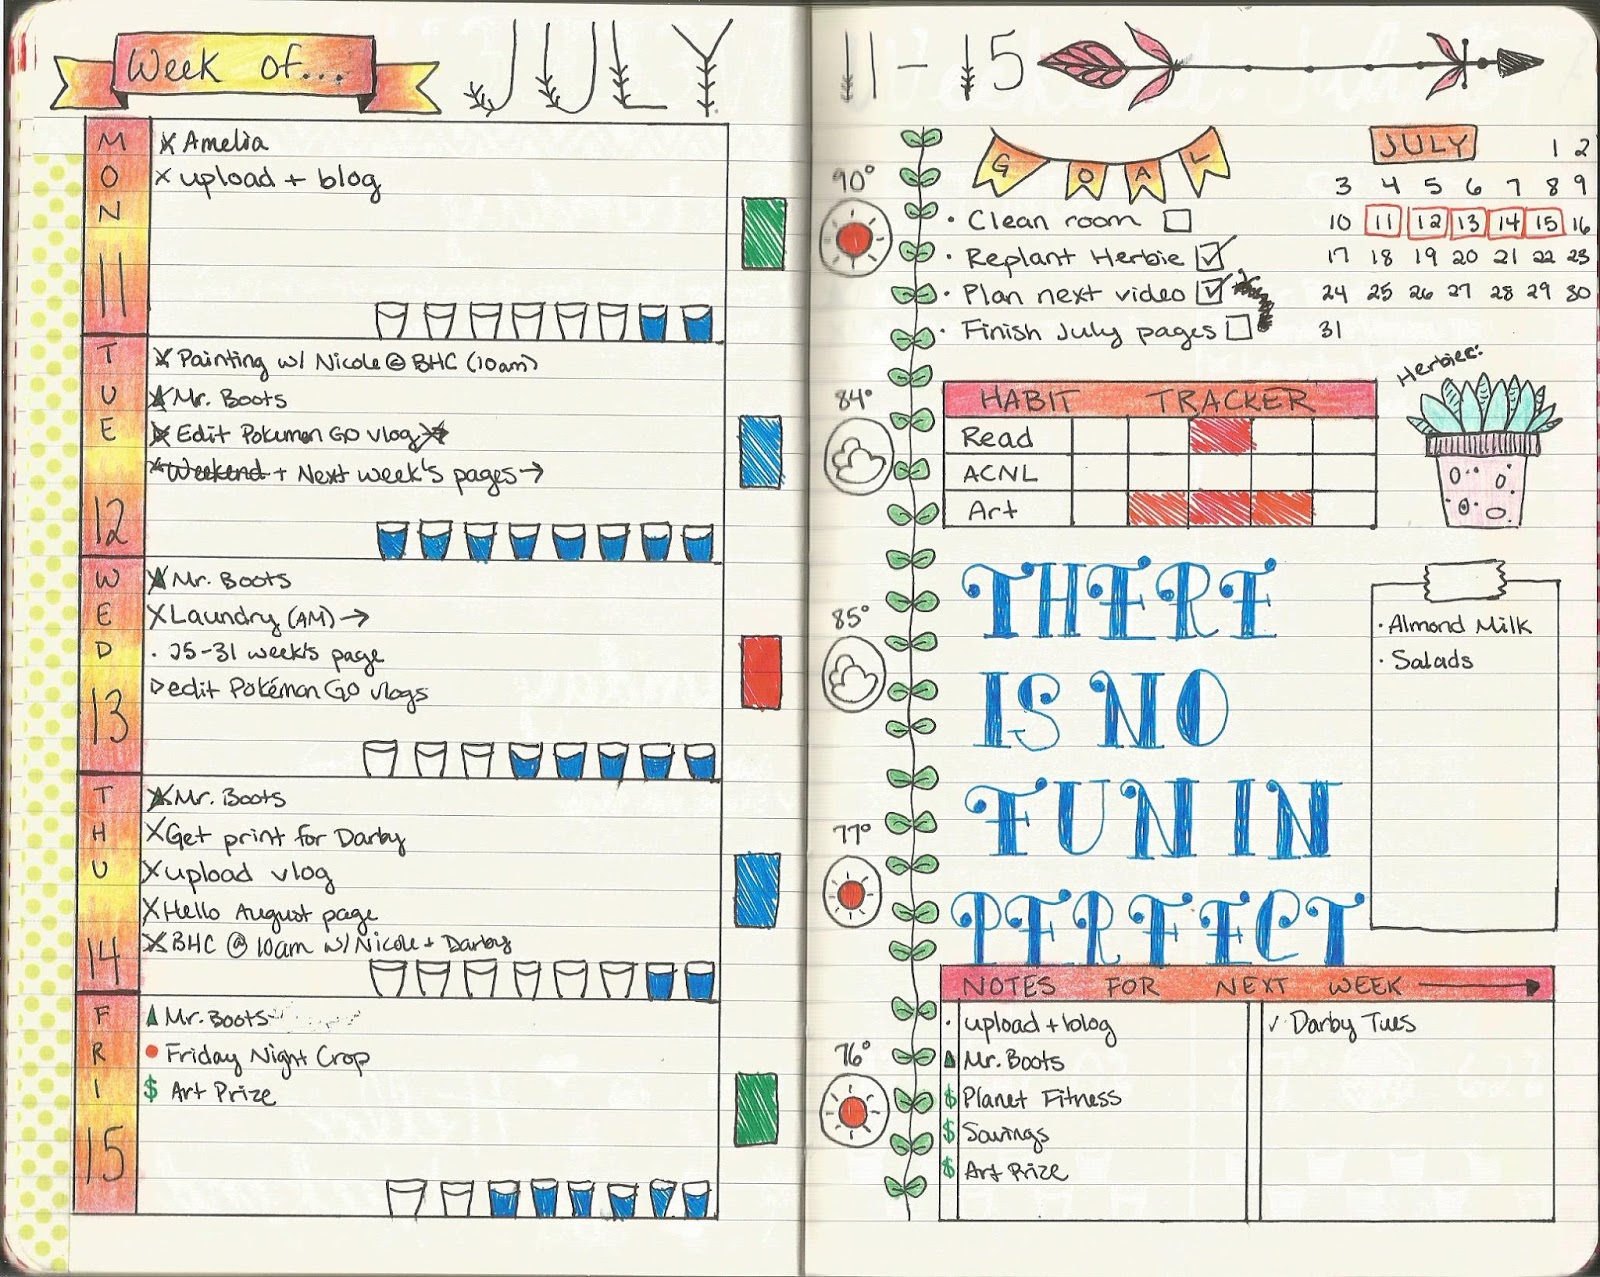 Week of...
JULY
11 - 15
MON
11
Amelia
upload + blog
TUE
12
Painting w/ Nicole @ BHC (10am)
Mr. Boots
Edit Pokemon GO vlog
Weekend + Next week's pages →
WED
13
Mr. Boots
Laundry (AM) →
· 25-31 week's page
edit Pokémon GO vlogs
THU
14
Mr. Boots
Get print for Darby
upload vlog
Hello August page
BHC @ 10am w/ Nicole + Darby
FRI
15
Mr. Boots
Friday Night Crop
$ Art Prize
90°
84°
85°
77°
76°
GOAL
· Clean room
· Replant Herbie
· Plan next video
· Finish July pages
JULY
1 2
3 4 5 6 7 8 9
10 11 12 13 14 15 16
17 18 19 20 21 22 23
24 25 26 27 28 29 30
31
HABIT TRACKER
Read
ACNL
Art
Herbie:
THERE
IS NO
FUN IN
PERFECT
· Almond Milk
· Salads
NOTES FOR NEXT WEEK
· upload + blog
Mr. Boots
$ Planet Fitness
$ Savings
$ Art Prize
✓ Darby Tues